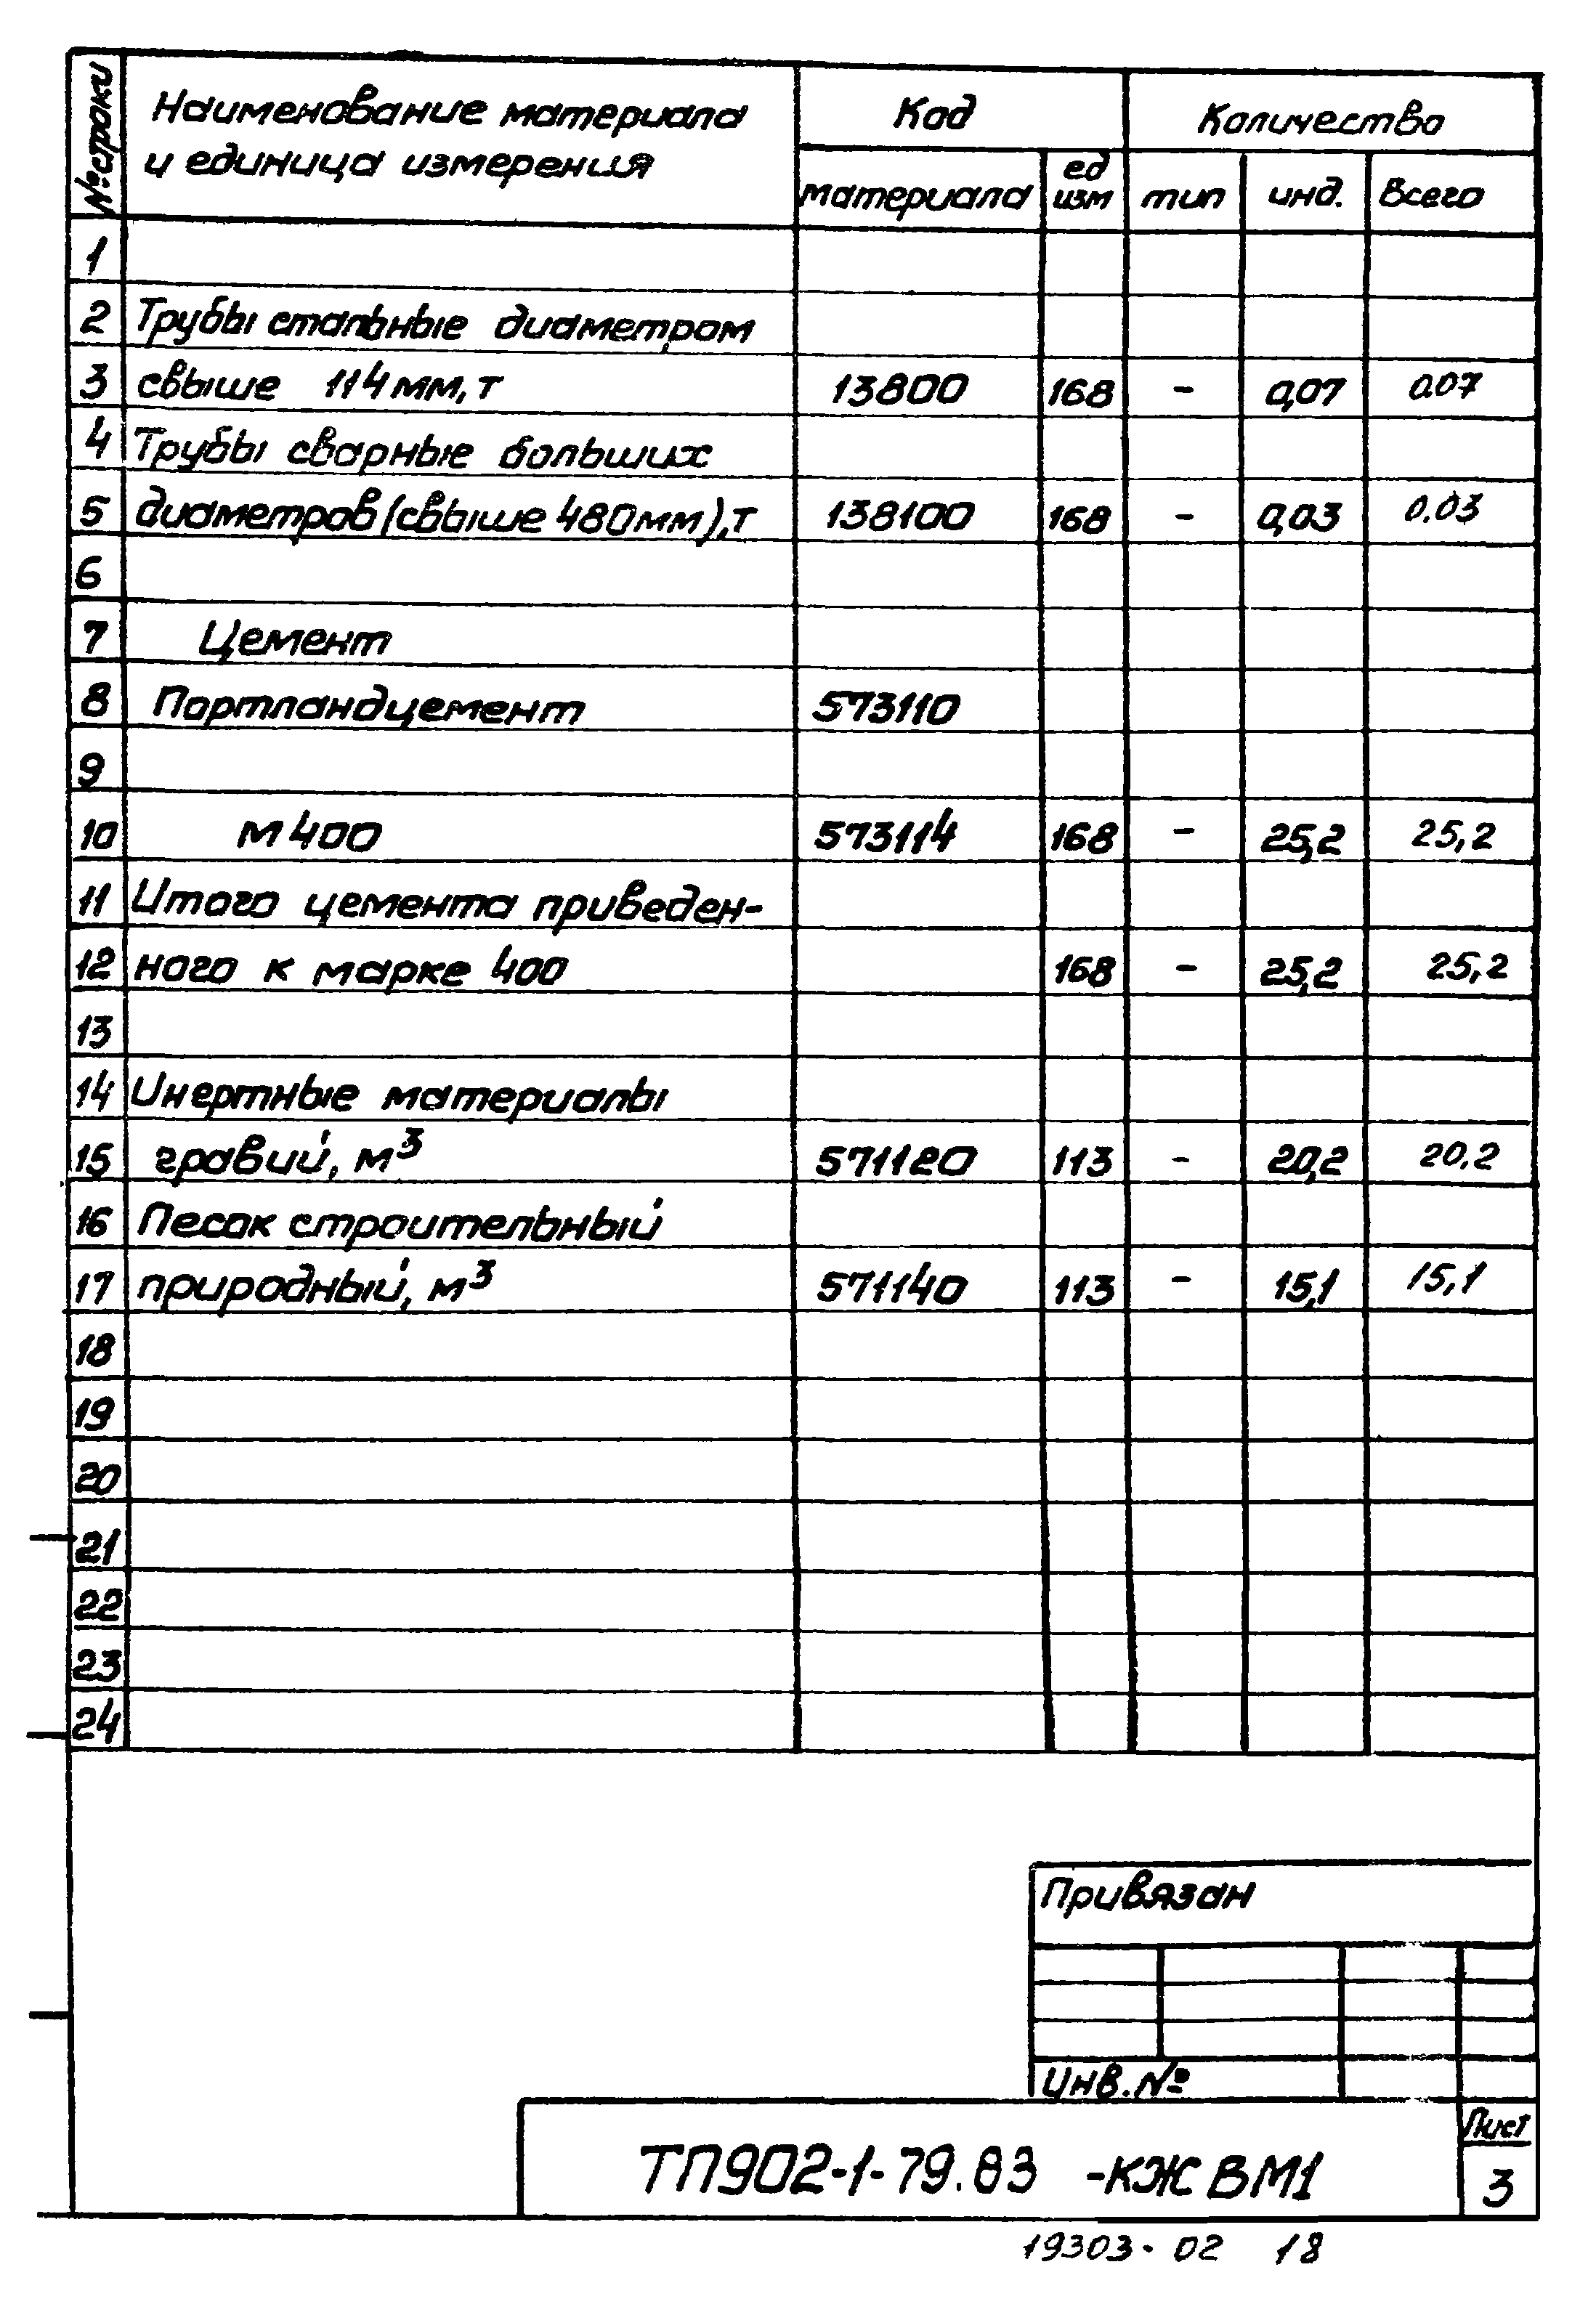 № строки Наименование материала Код Количество
и единица измерения материала ед изм тип инд. Всего
1
2 Трубы стальные диаметром
3 свыше 114 мм, т 13800 168 - 0,07 0.07
4 Трубы сварные больших
5 диаметров (свыше 480мм), т 138100 168 - 0,03 0.03
6
7 Цемент
8 Портландцемент 573110
9
10 М 400 573114 168 - 25,2 25,2
11 Итого цемента приведен-
12 ного к марке 400 168 - 25,2 25,2
13
14 Инертные материалы
15 гравий, м³ 571120 113 - 20,2 20,2
16 Песок строительный
17 природный, м³ 571140 113 - 15,1 15,1
18
19
20
21
22
23
24
Привязан
Инв. №
ТП902-1-79.83 -КЖ ВМ1
Лист
3
19303-02 18